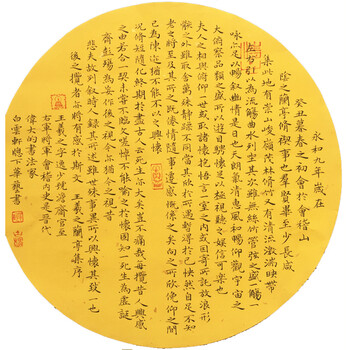 永和九年歲在
癸丑暮春之初會於會稽山
陰之蘭亭脩稧事也羣賢畢至少長咸
集此地有崇山峻嶺茂林脩竹又有清流激湍映帶
左右引以為流觴曲水列坐其次雖無絲竹管弦之盛一觴一
詠亦足以暢敘幽情是日也天朗氣清惠風和暢仰觀宇宙之
大俯察品類之盛所以遊目騁懷足以極視聽之娛信可樂也
夫人之相與俯仰一世或取諸懷抱悟言一室之內或因寄所託放浪形
骸之外雖取舍萬殊靜躁不同當其欣於所遇暫得於己快然自足不知
老之將至及其所之既惓情隨事遷感慨係之矣向之所欣俛仰之間
已為陳迹猶不能不以之興懷
況脩短隨化終期於盡古人云死生亦大矣豈不痛哉每攬昔人興感
之由若合一契未嘗不臨文嗟悼不能喻之於懷固知一死生為虛誕
齊彭殤為妄作後之視今亦由今之視昔
悲夫故列敘時人錄其所述雖世殊事異所以興懷其致一也
後之攬者亦將有感於斯文 王羲之蘭亭集序
王羲之字逸少號澹齋官至
右軍將軍會稽內史是晉代
偉大的書法家
白雲軒 華藝書